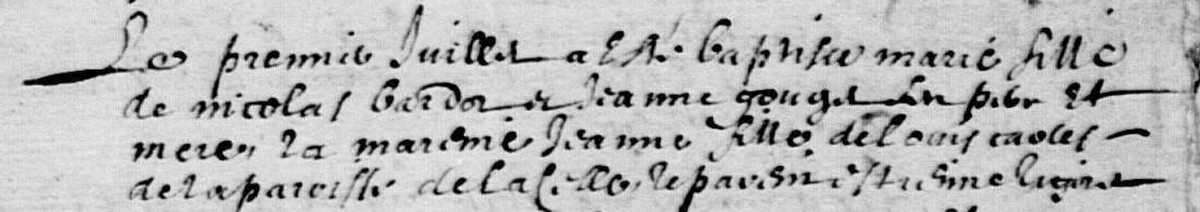 Le premie Juillet a esté baptisée marie fille
de nicolas bardot et Jeanne gouget ses pere et
mere, la mareine Jeanne fille de Louis
de la paroisse de la Celle, le parein estienne